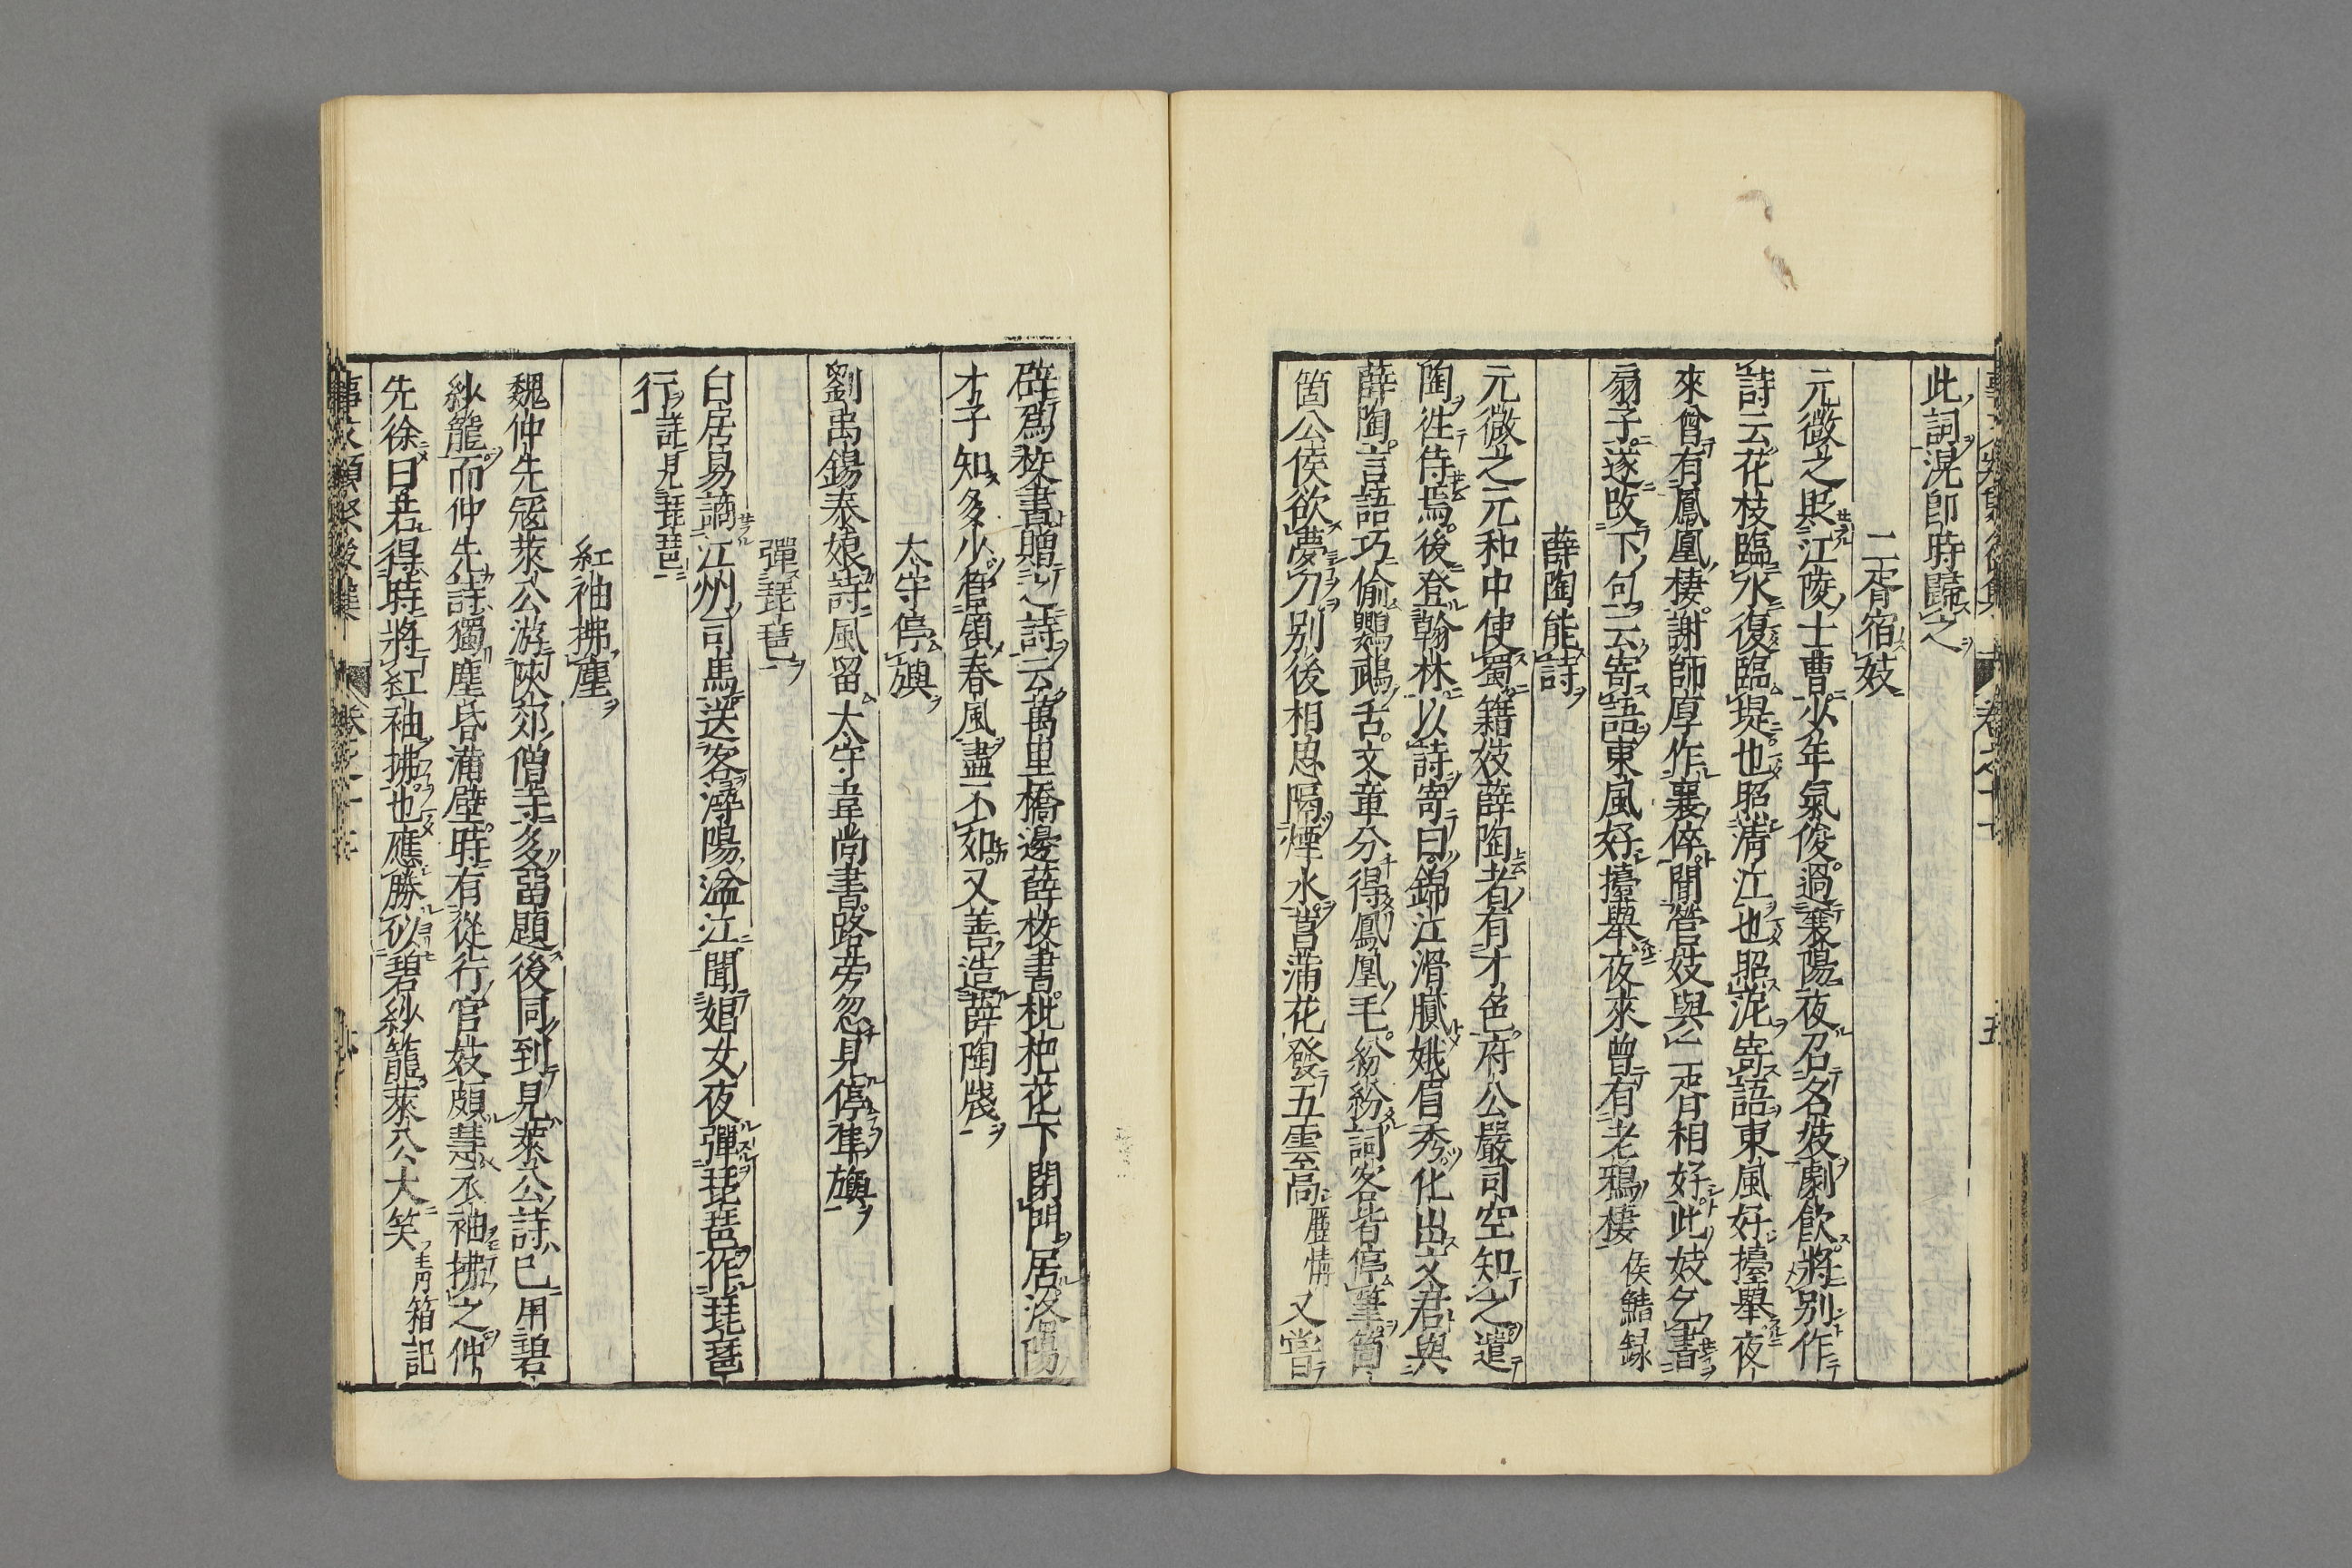 此詞滉即時歸之
二胥宿妓
元微之貶江陵士曹少年氣俊過襄陽夜召名妓劇飲將別作
詩云花枝臨水復臨堤也照清江也照泥寄語東風好擡舉夜
來曾有鳳凰棲謝師厚作襄倅聞營妓與二胥相好此妓乞書
扇子遂改下句云寄語東風好擡舉夜來曾有老鴉棲侯鯖録
薛陶能詩
元微之元和中使蜀籍妓薛陶者有才色府公嚴司空知之遣
陶徃侍焉後登翰林以詩寄曰錦江滑膩娥眉秀化出文君與
薛陶言語巧偷鸚鵡舌文章分得鳳凰毛紛紛詞客皆停筆箇
箇公侯欲夢刀别後相思隔煙水菖蒲花發五雲高麗情又嘗
辟爲校書贈之詩云萬里橋邊薛校書枇杷花下閉門居洛陽
才子知多少管領春風盡不如又善造薛陶牋
太守停旟
劉禹錫泰娘詩風留太守韋尚書路旁忽見停隼旟
彈琵琶
白居易謫江州司馬送客潯陽湓江聞娼女夜彈琵琶作琵琶
行詳見琵琶
紅袖拂塵
魏仲先冦萊公游陝郊僧寺多留題後同到見萊公詩已用碧
紗籠而仲先詩獨塵昏滿壁時有從行官妓頗慧衣袖拂之仲
先徐曰若得時將紅袖拂也應勝似碧紗籠萊公大笑青箱記